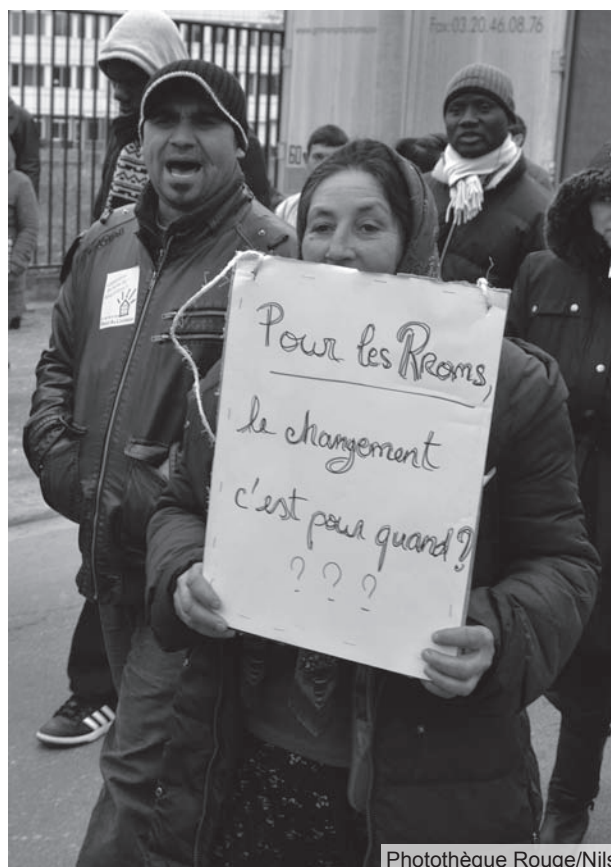 Fax:03.20.46.08.76
60
Pour les Rroms,
le changement
c'est pour quand?
? ? ?
Photothèque Rouge/Nils